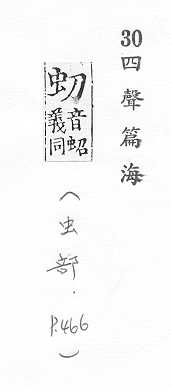 30四聲篇海
虭
音蛁
義同
（虫部．P.466）